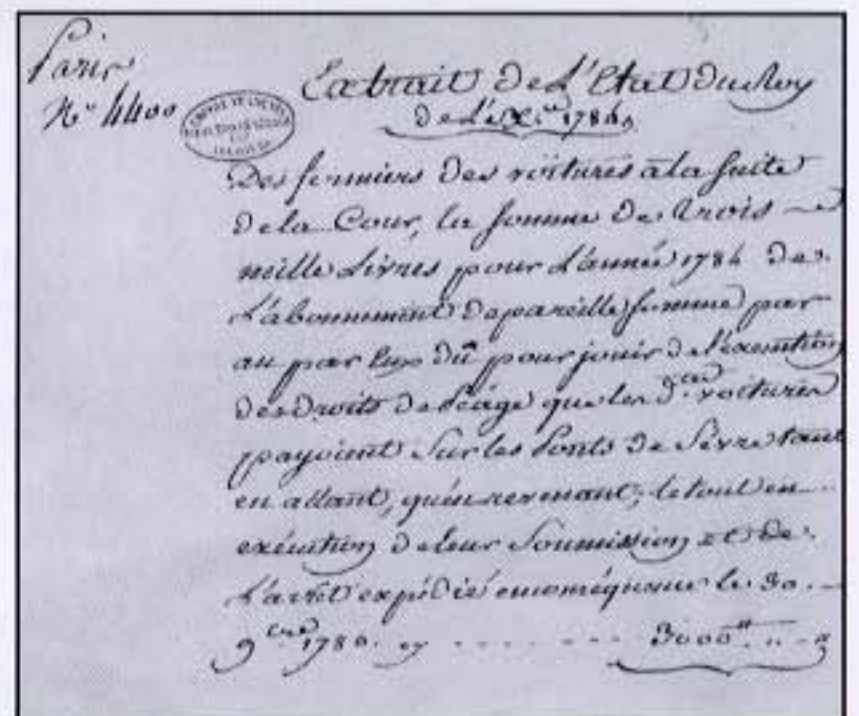 Paris
N.º 4400
Extrait de L'Etat du Roy
de L'ex.ce 1784
Des fermiers des voitures a la suite
de la Cour, la somme de trois
mille Livres pour L'année 1784 de
L'abonnement de pareille somme par
an par Eux dû pour jouir de l'exemtion
des Droits de Péage que les d.tes voitures
payoient Sur les Ponts de Sèvre tant
en allant, qu'en revenant; le tout en
exécution de leur Soumission et de
L'arrêt expédié en conséquence le 30
9.bre 1780. cy 3000